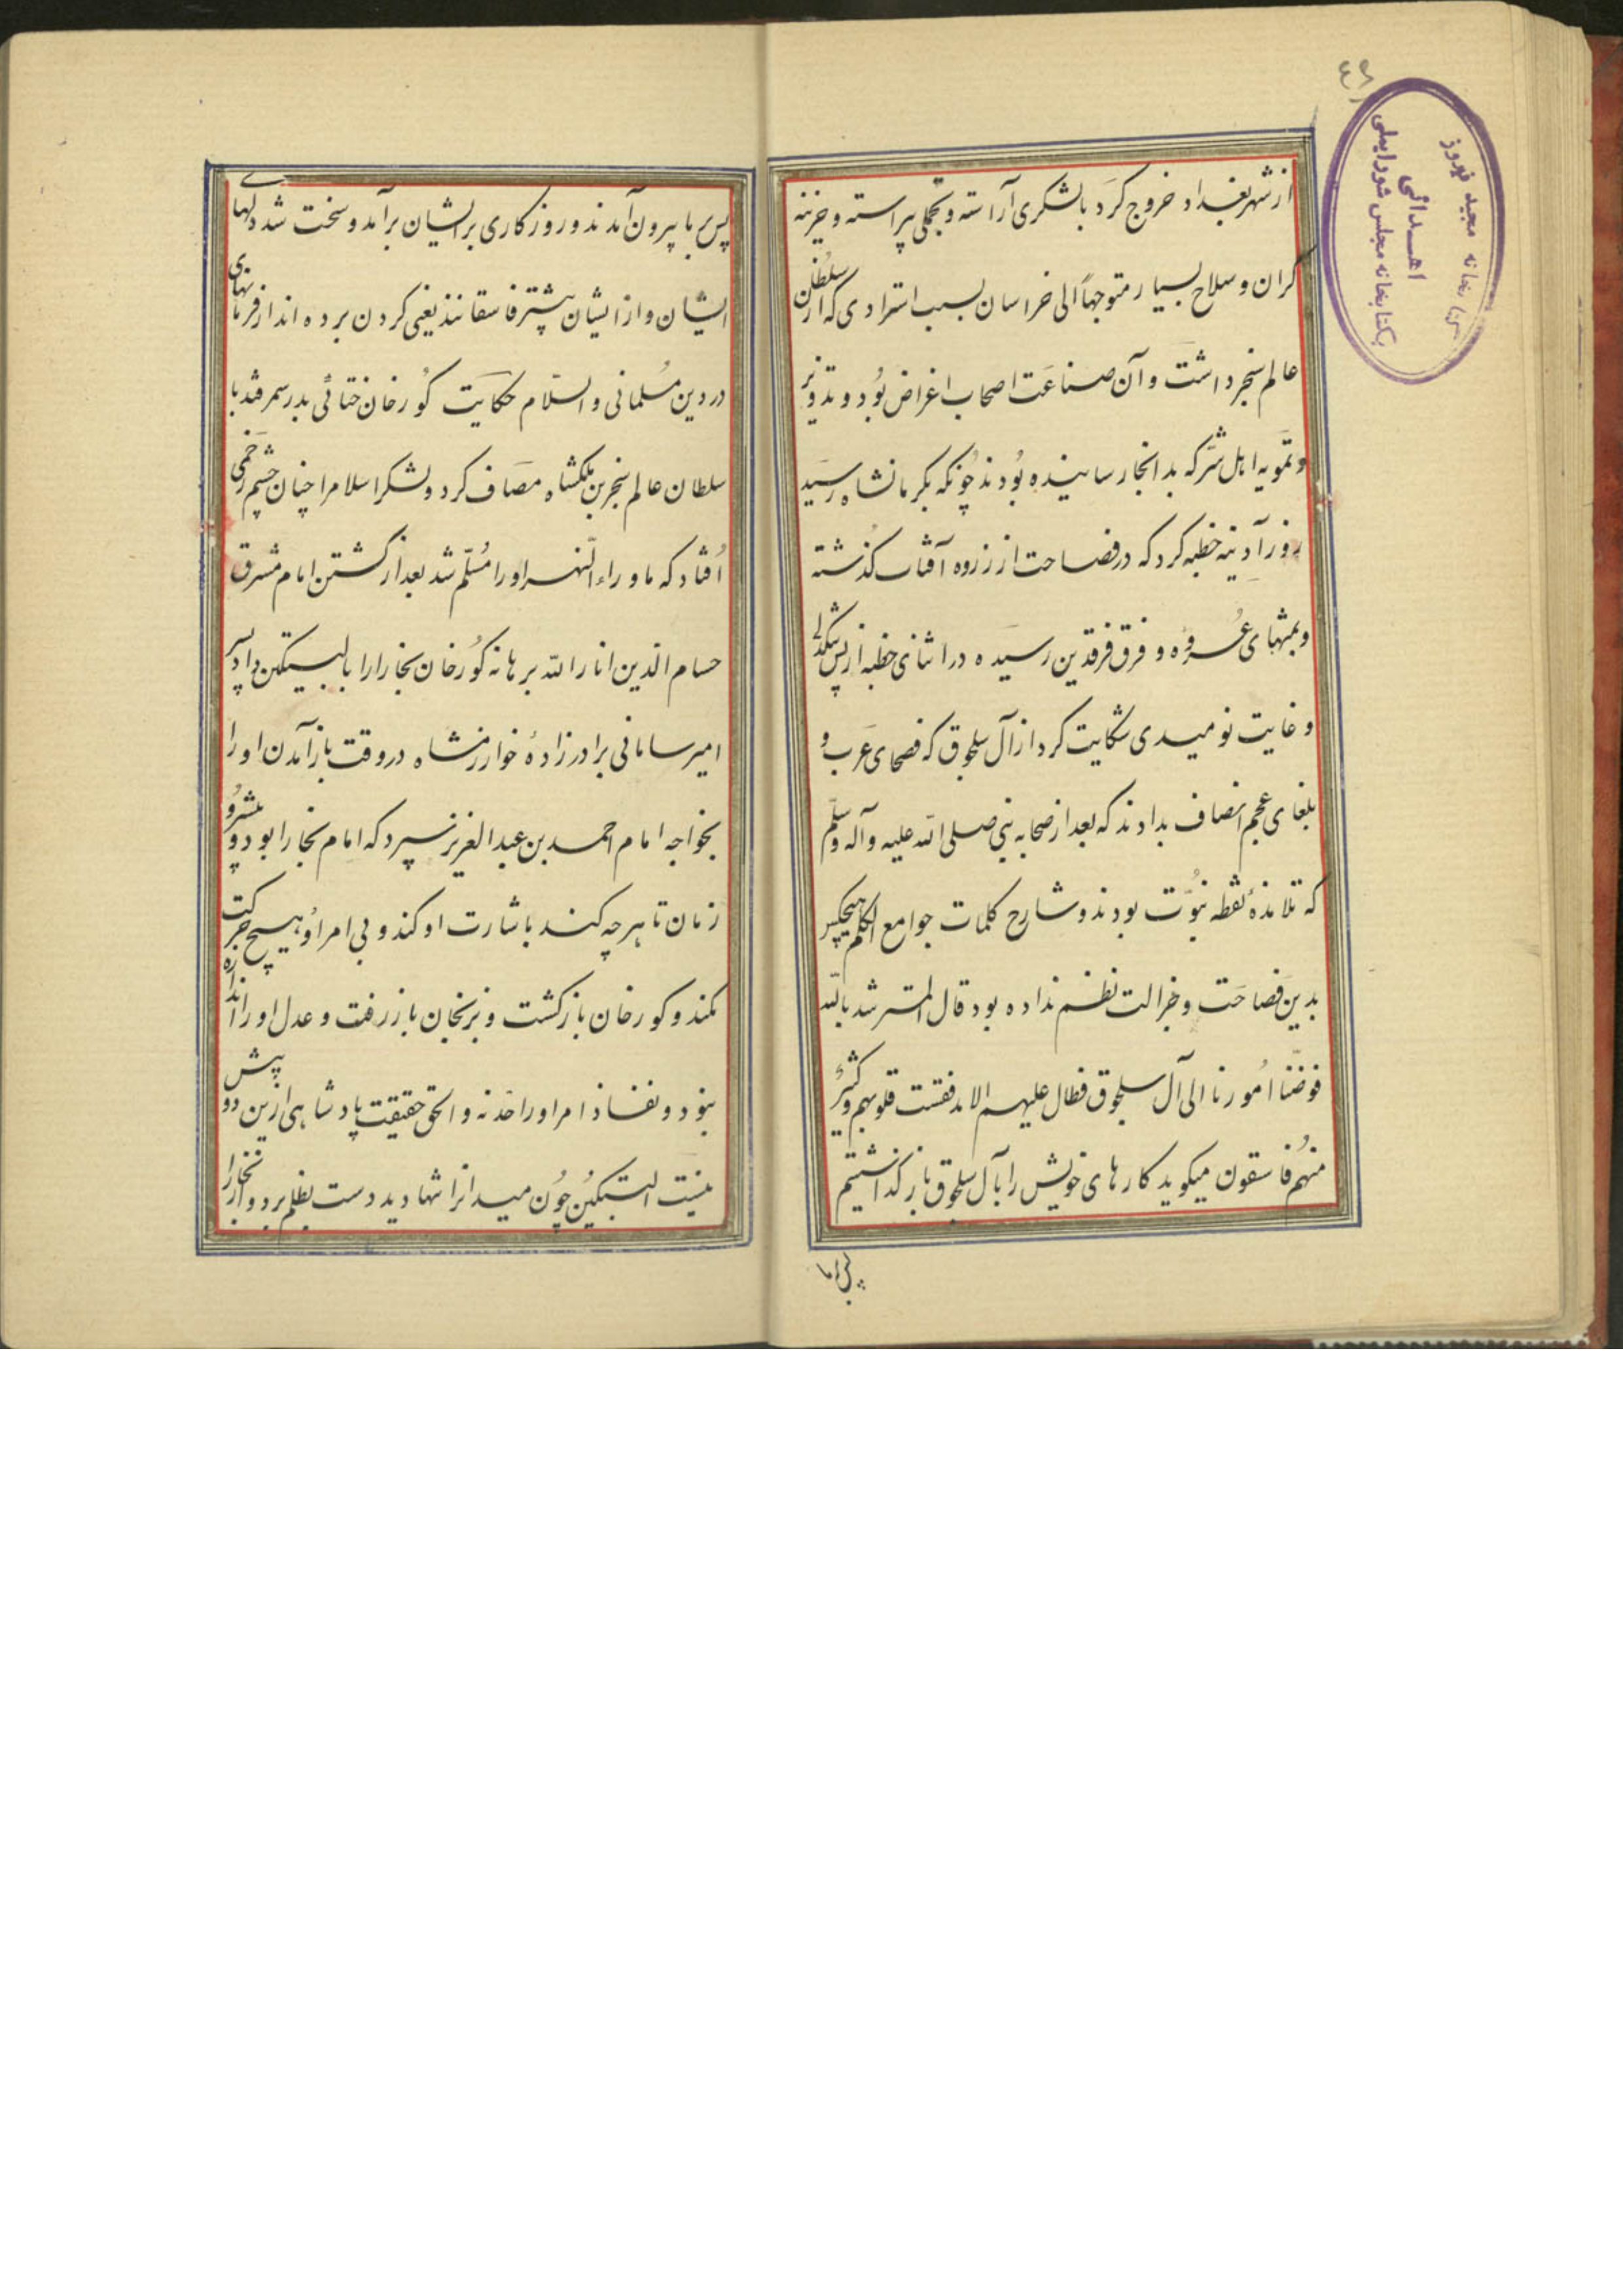 از شهر بغداد خروج کرد با لشکری آراسته و تجملی پیراسته و خزینه
گران و سلاح بسیار متوجهاً الی خراسان بسبب استزادی که از سلطان
عالم سنجر داشت و آن صناعت اصحاب اغراض بُود و تدویر
و تمویه اهل شرّ که بدانجا رسانیده بُودند چُونکه بکرمانشاه رسید
روز آدینه خطبه کرد که در فصاحت از زروه آفتاب گذشته
و بمنتهای و فرق فرقدین رسیده در اثنای خطبه از پس تنگدلی
و غایت نومیدی شکایت کرد از آل سلجوق که فصحای عرب و
بلغای عجم انصاف بدادند که بعد از صحابه نبی صلی الله علیه و آله وسلّم
که تلامذهٔ نقطه نبوّت بودند و شارح کلمات جوامع الکلم هیچکس
بدین فصاحت و جزالت نظم نداده بود قال المسترشد بالله
فوضّنا اُمورنا الی آل سلجوق فطال علیهم الامد فقست قلوبهم و کثیرٌ
منهُم فاسقون میگوید کارهای خویش را بآل سلجوق باز گذاشتیم
پس بر ما
پس بر ما بیرون آمدند و روزگاری بر ایشان برآمد و سخت شد دلهای
ایشان و از ایشان بیشتر فاسقانند یعنی گردن برده اند از فرمانهای
در دین مُسلمانی و السّلام حکایت گورخان ختائی بدر سمرقند با
سلطان عالم سنجر بن ملکشاه مصاف کرد و لشکر اسلام را چنان چشم زخمی
اُفتاد که ماوراء النّهر او را مُسلّم شد بعد از کشتن امام مشرق
حسام الدین انار الله برهانه گورخان بخارا را بالبتکین داد پسر
امیر سامانی برادر زادهٔ خوارزمشاه در وقت باز آمدن او را
بخواجه امام احمد بن عبد العزیز سپرد که امام بخارا بود و
زمان تا هرچه کند باشارت او کند و بی امر اُو هیچ حرکت
نکند و گورخان بازگشت و ببرنخان باز رفت و عدل او را اندازه
نبود و نفاذ امر او را حَد نه و الحق حقیقت پادشاهی ازین دو پیش
نیست البتکین چُون میدان تنها دید دست بظلم برد و از بخارا
کتابخانه مجید فیروز
اهدائی
بکتابخانه مجلس شورایملی